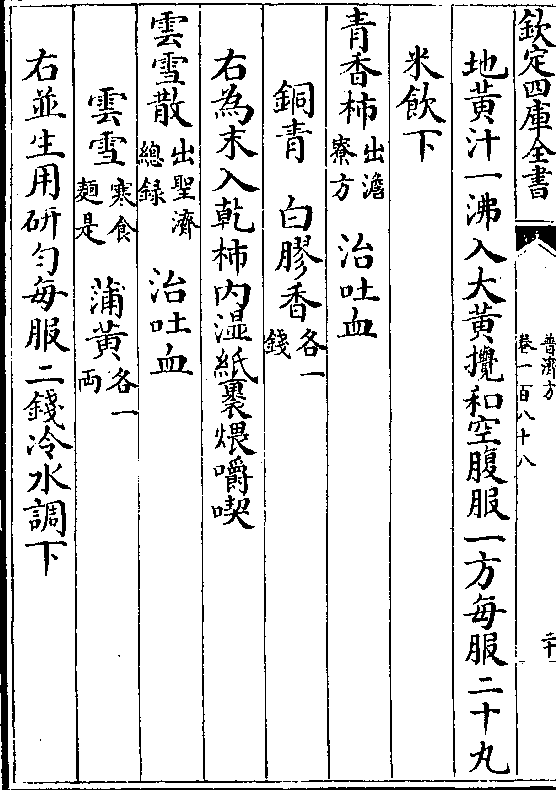 欽定四庫全書
普濟方
卷一百八十八
二十
地黄汁一沸入大黄攪和空腹服一方每服二十丸
米飲下
青香柿出澹寮方 治吐血
銅青 白膠香各一錢
右為末入乾柿内湿紙裹煨嚼喫
雲雪散出聖濟總録 治吐血
雲雪寒食麵是 蒲黄各一両
右並生用研匀每服二錢冷水調下